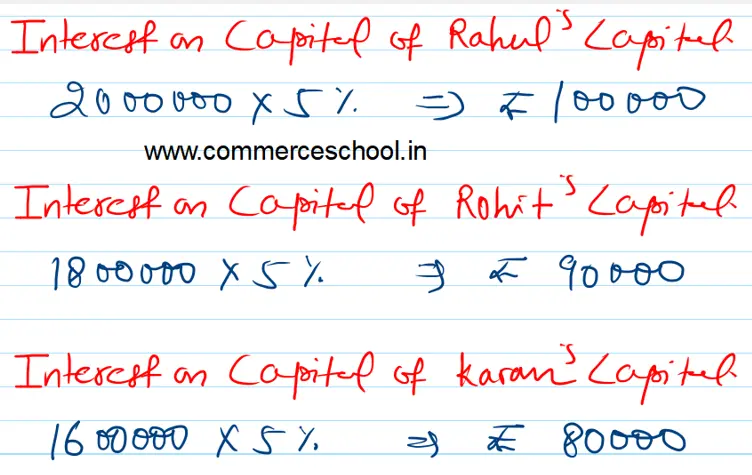 Interest on Capital of Rahul's Capital
2000000 X 5 % ⇒ ₹ 100000
www.commerceschool.in
Interest on Capital of Rohit's Capital
1800000 X 5 % ⇒ ₹ 90000
Interest on Capital of Karan's Capital
1600000 X 5 % ⇒ ₹ 80000